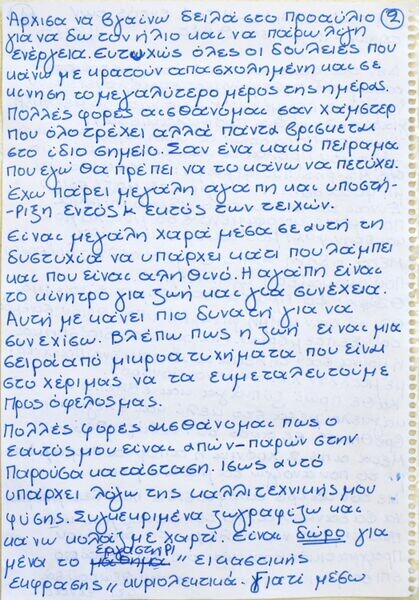 Άρχισα να βγαίνω δειλά στο προαύλιο ②
για να δω τον ήλιο και να πάρω λίγη
ενέργεια. Ευτυχώς όλες οι δουλειές που
κάνω με κρατούν απασχολημένη και σε
κίνηση το μεγαλύτερο μέρος της ημέρας.
Πολλές φορές αισθάνομαι σαν χάμστερ
που όλο τρέχει αλλά πάντα βρίσκεται
στο ίδιο σημείο. Σαν ένα κακό πείραμα
που εγώ θα πρέπει να το κάνω να πετύχει.
Έχω πάρει μεγάλη αγάπη και υποστή-
-ριξη εντός κ εκτός των τειχών.
Είναι μεγάλη χαρά μέσα σε αυτή τη
δυστυχία να υπάρχει κάτι που λάμπει
και που είναι αληθινό. Η αγάπη είναι
το κίνητρο για ζωή και για συνέχεια.
Αυτή με κάνει πιο δυνατή για να
συνεχίσω. Βλέπω πως η ζωή είναι μια
σειρά από μικροατυχήματα που είναι
στο χέρι μας να τα εκμεταλευτούμε
προς όφελος μας.
Πολλές φορές αισθάνομαι πως ο
εαυτός μου είναι απών-παρών στην
παρούσα κατάσταση. Ίσως αυτό
υπάρχει λόγω της καλλιτεχνικής μου
φύσης. Συγκεκριμένα ζωγραφίζω και
κάνω κολάζ με χαρτί. Είναι δώρο για
εργαστήρι
μένα το μάθημα " εικαστικής
έκφρασης " κυριολεκτικά. Γιατί μέσω